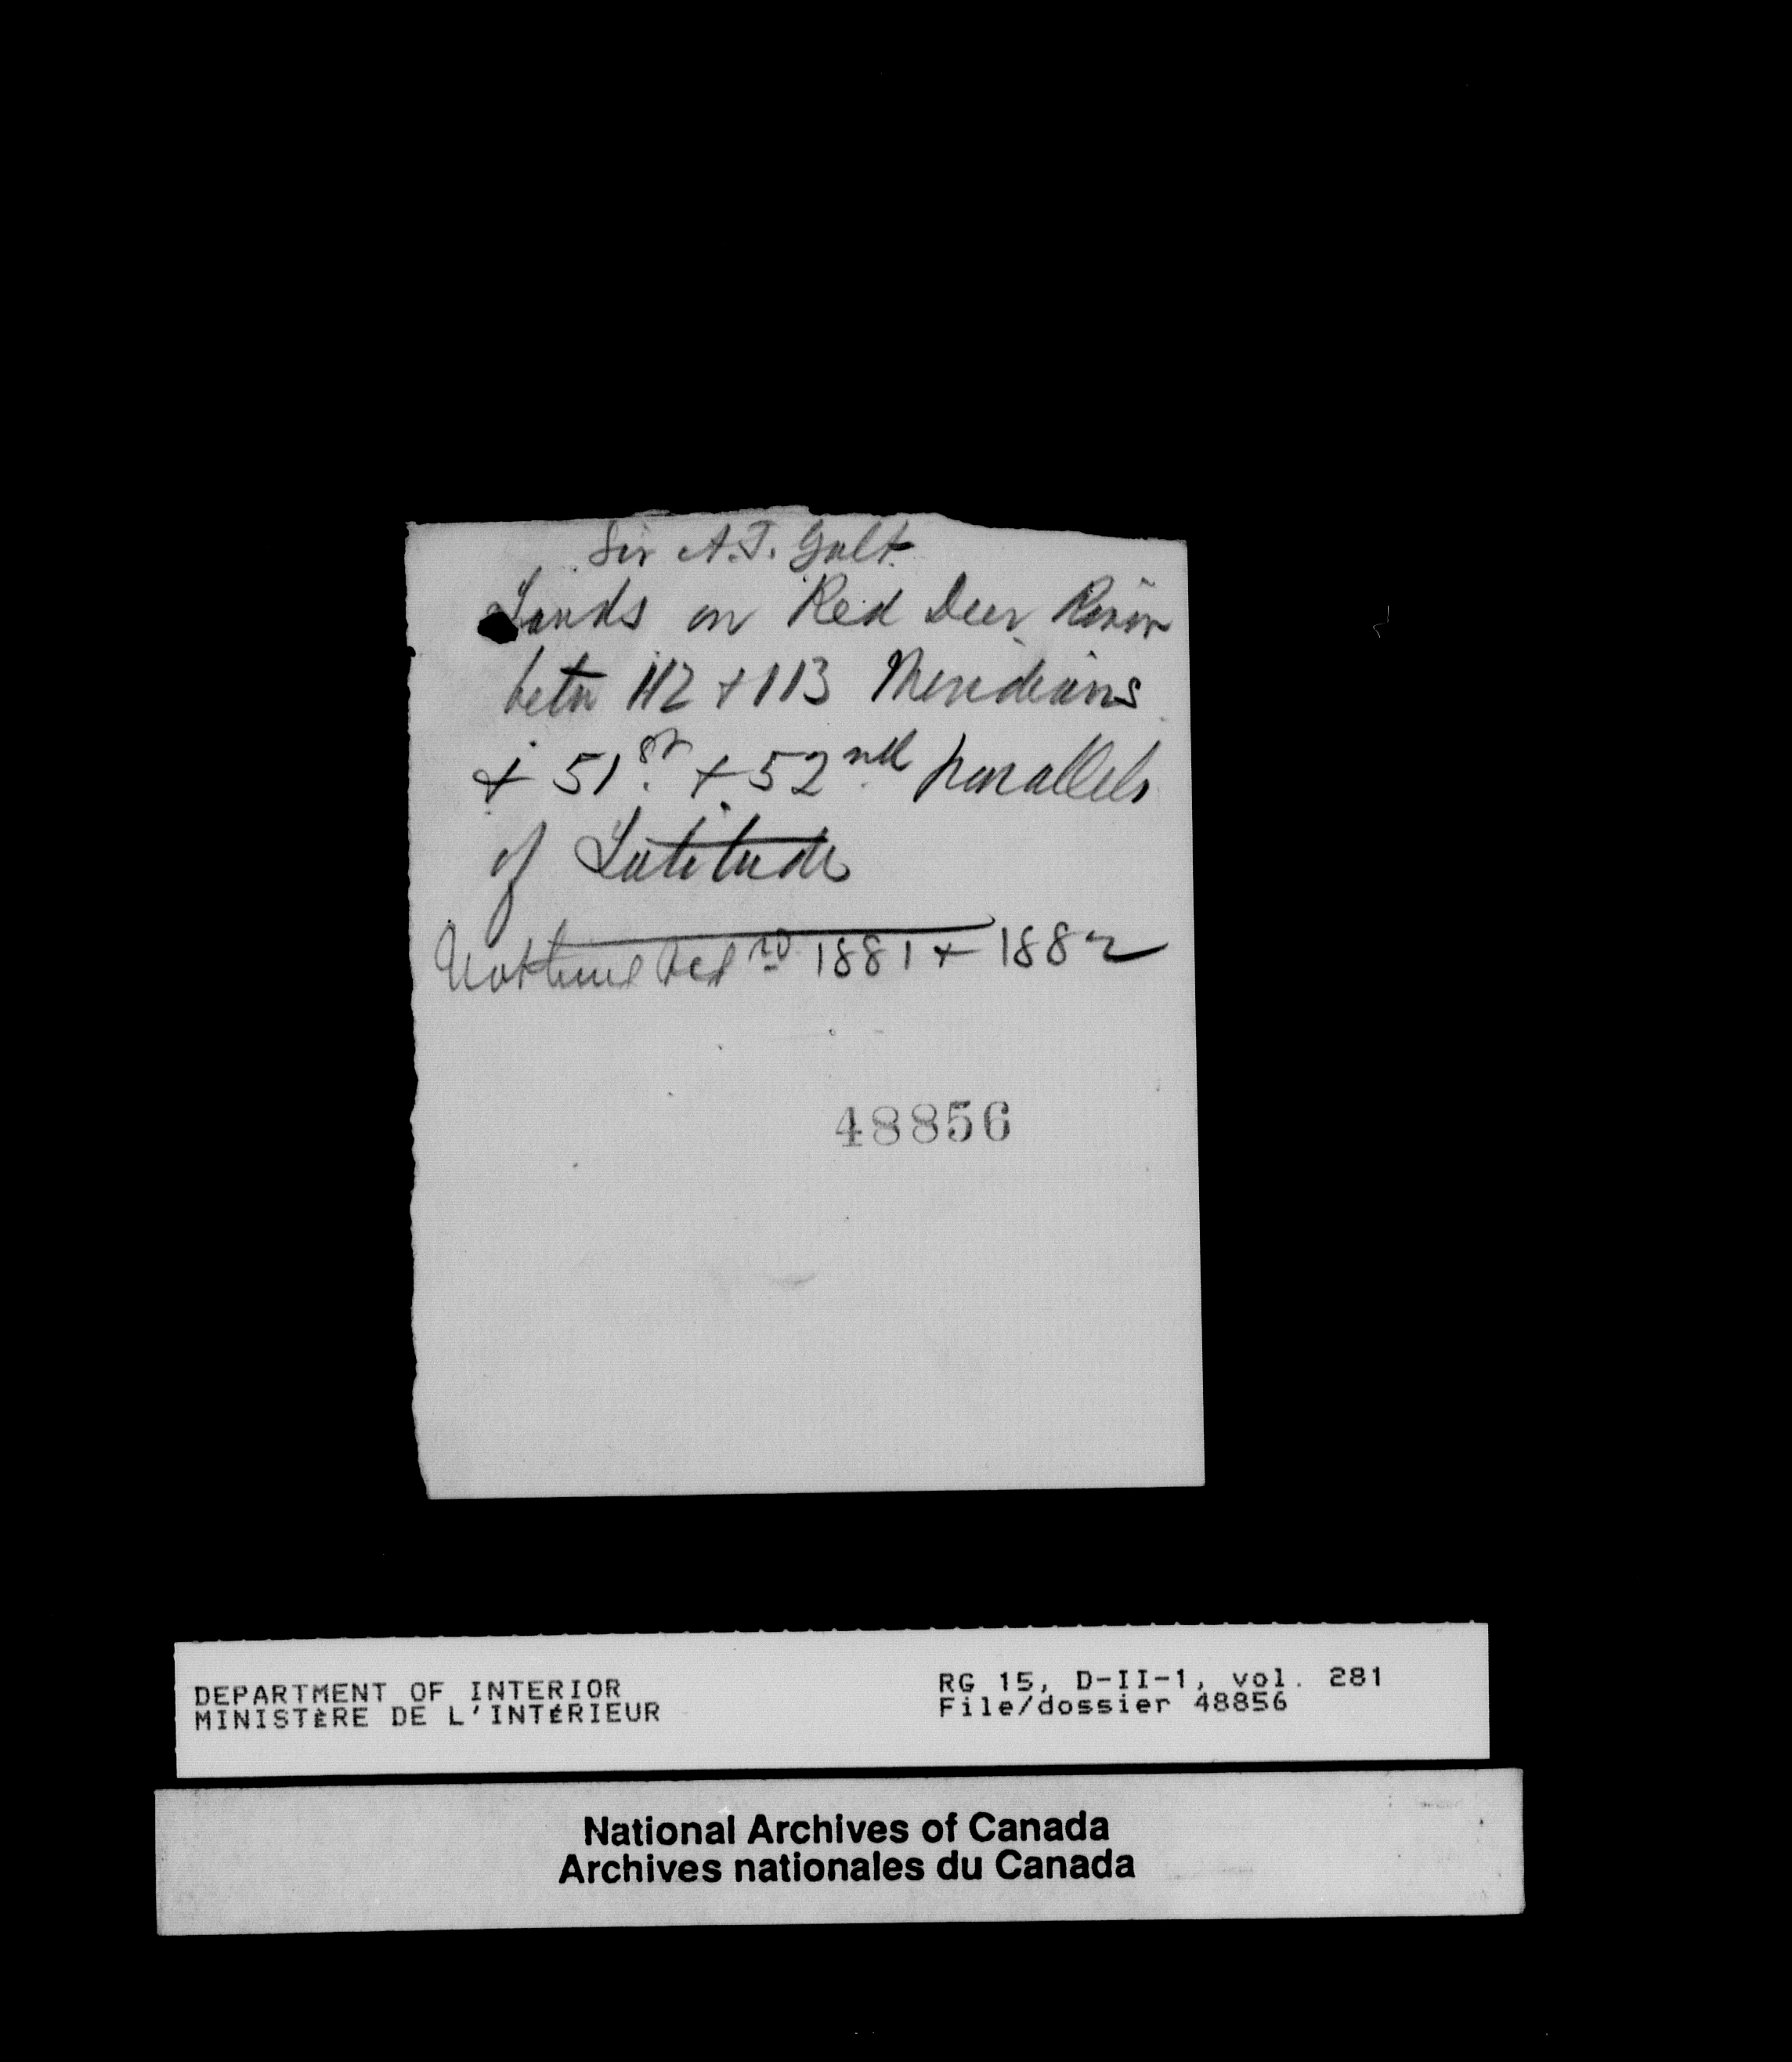 Sir A.T. Galt.
Lands on Red Deer River
betn 112 + 113 Meridians
+ 51st + 52nd parallels
of Latitude
1881 + 1882
48856
DEPARTMENT OF INTERIOR
MINISTÈRE DE L'INTÉRIEUR
RG 15, D-II-1, vol. 281
File/dossier 48856
National Archives of Canada
Archives nationales du Canada